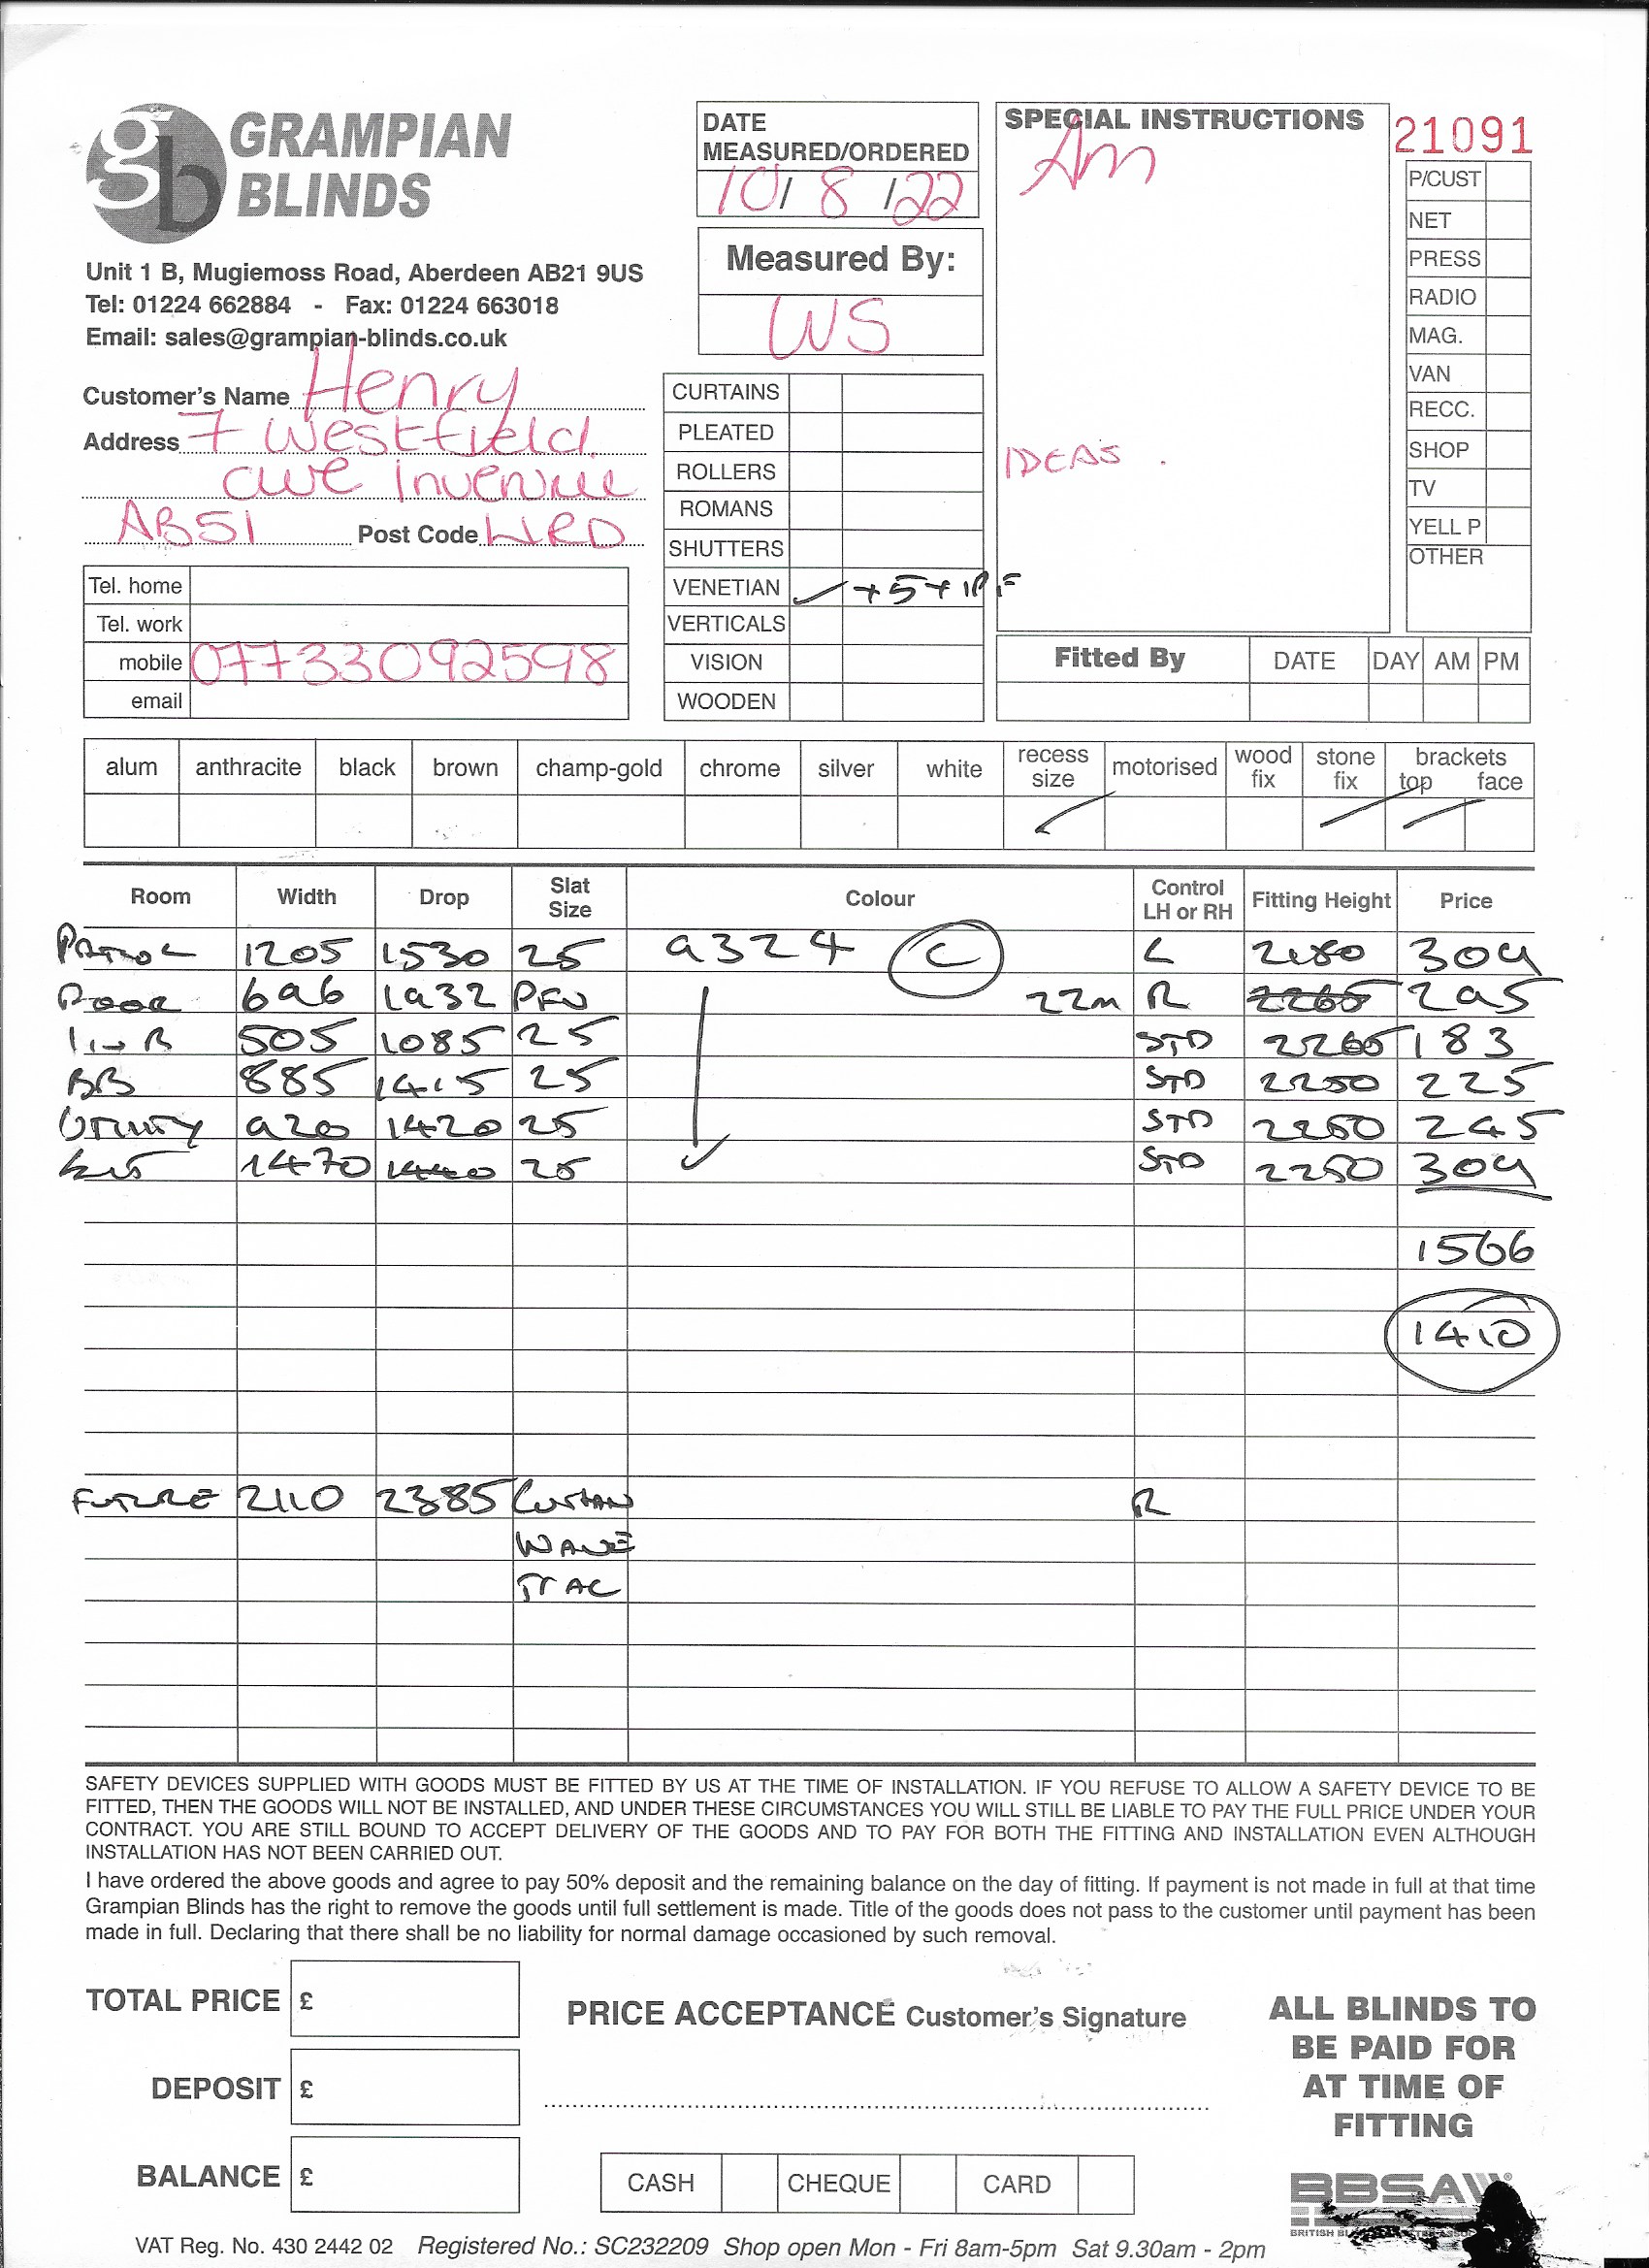 gb GRAMPIAN BLINDS
Unit 1 B, Mugiemoss Road, Aberdeen AB21 9US
Tel: 01224 662884 - Fax: 01224 663018
Email: sales@grampian-blinds.co.uk
DATE
MEASURED/ORDERED
10/ 8 /22
Measured By:
WS
SPECIAL INSTRUCTIONS
Am
IDEAS .
21091
P/CUST
NET
PRESS
RADIO
MAG.
VAN
RECC.
SHOP
TV
YELL P
OTHER
Customer's Name Henry
Address 7 Westfield
AB51 Post Code
Tel. home
Tel. work
mobile 07733092598
email
CURTAINS
PLEATED
ROLLERS
ROMANS
SHUTTERS
VENETIAN ✓ +5+1PF
VERTICALS
VISION
WOODEN
Fitted By DATE DAY AM PM
alum anthracite black brown champ-gold chrome silver white recess size motorised wood fix stone fix brackets top face
Room Width Drop Slat Size Colour Control LH or RH Fitting Height Price
1205 1530 25 9324 C L 2180 309
Door 696 1932 22m R 2265 295
505 1085 25 STD 2265 183
BB 885 1415 25 STD 2250 225
Utility 920 1420 25 STD 2250 245
Kit 1470 1440 25 STD 2250 309
1566
1410
FUTURE 2110 2385 Curtain R
WAVE
TRAC
SAFETY DEVICES SUPPLIED WITH GOODS MUST BE FITTED BY US AT THE TIME OF INSTALLATION. IF YOU REFUSE TO ALLOW A SAFETY DEVICE TO BE
FITTED, THEN THE GOODS WILL NOT BE INSTALLED, AND UNDER THESE CIRCUMSTANCES YOU WILL STILL BE LIABLE TO PAY THE FULL PRICE UNDER YOUR
CONTRACT. YOU ARE STILL BOUND TO ACCEPT DELIVERY OF THE GOODS AND TO PAY FOR BOTH THE FITTING AND INSTALLATION EVEN ALTHOUGH
INSTALLATION HAS NOT BEEN CARRIED OUT.
I have ordered the above goods and agree to pay 50% deposit and the remaining balance on the day of fitting. If payment is not made in full at that time
Grampian Blinds has the right to remove the goods until full settlement is made. Title of the goods does not pass to the customer until payment has been
made in full. Declaring that there shall be no liability for normal damage occasioned by such removal.
TOTAL PRICE £
DEPOSIT £
BALANCE £
PRICE ACCEPTANCE Customer's Signature
CASH CHEQUE CARD
ALL BLINDS TO
BE PAID FOR
AT TIME OF
FITTING
BBSA
BRITISH
VAT Reg. No. 430 2442 02 Registered No.: SC232209 Shop open Mon - Fri 8am-5pm Sat 9.30am - 2pm